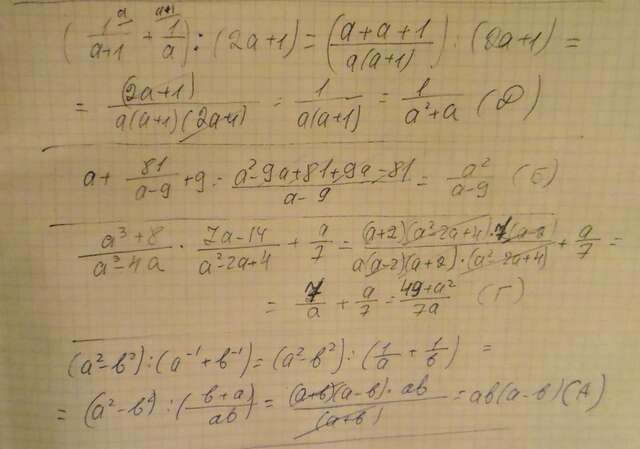 (1/(a+1) ^a + 1/a ^(a+1)) : (2a+1) = ((a+a+1)/(a(a+1))) : (2a+1) =
= (2a+1)/(a(a+1)(2a+1)) = 1/(a(a+1)) = 1/(a²+a) (Д)
a + 81/(a-9) + 9 = (a²-9a+81+9a-81)/(a-9) = a²/(a-9) (Б)
(a³+8)/(a³-4a) · (7a-14)/(a²-2a+4) + a/7 = ((a+2)(a²-2a+4)·7(a-2))/(a(a-2)(a+2)·(a²-2a+4)) + a/7 =
= 7/a + a/7 = (49+a²)/(7a) (Г)
(a²-b²) : (a⁻¹+b⁻¹) = (a²-b²) : (1/a + 1/b) =
= (a²-b²) : ((b+a)/(ab)) = ((a+b)(a-b)·ab)/(a+b) = ab(a-b) (А)